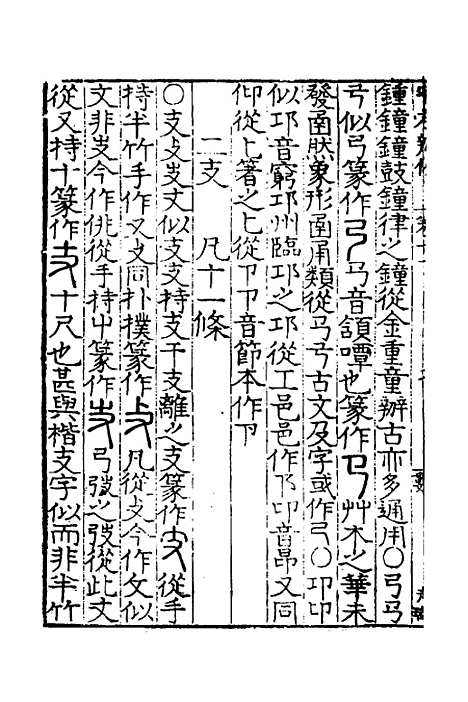 鐘鐘鐘鼓鐘律之鐘從金重童辨古亦多通用〇弓㢧
㢧似弓篆作弓㢧音頷嘾也篆作㔾艸木之華未
發圅然象形圅甬類從㢧㢧古文及字或作弓〇卭卬
似邛音窮邛州臨邛之邛從工邑邑作阝卬音昂又同
仰從匕箸之匕從卩卩音節本作卪
二支　凡十一條
〇支攴支丈似支支持支干支離之支篆作支從手
持半竹手作又攴同扑撲篆作攴凡從攴今作攵似
文非支今作佻從手持屮篆作弓弢之弢從此丈
從又持十篆作十尺也甚與楷支字似而非半竹